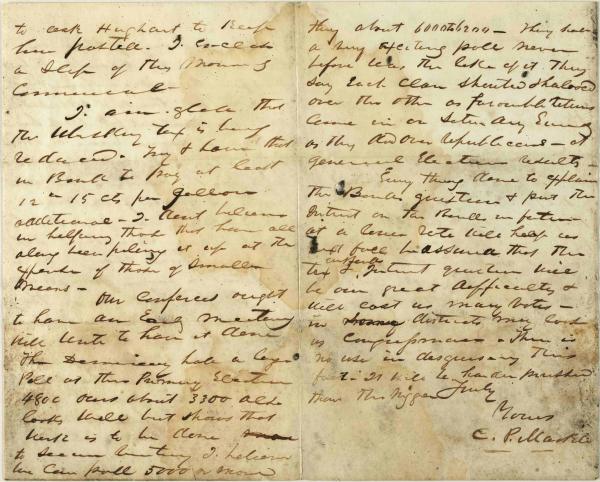 to ask Hughart to keep
him posted. I enclose
a Slip of this Morning
Commercial
I am glad that
the Whiskey tax is being
reduced. Try & have that
in Bond to pay at least
12 or 15 cts per gallon
additional - I dont believe
in helping those that have all
along been piling it up at the
expense of those of smaller
means -
Our Conferees ought
to have an Early meeting
Will write to have it done
The Democracy had a large
Poll at this Primary Election
4800 ours about 3300 also
looks well but shows that
work is to be done
to secure unity I believe
We can poll 5000 or more
they about 6000 to 6200 - They had
a very exciting poll never
before was the like of it. They
say Each Clan shouted & halooed
over the other as favorable returns
came in on Saturday Evening
as they did over republicans - at
general Election results -
Every thing done to explain
the Bonds question & put the
Interest on the Bonds in future
at a lower rate will help us
and feel assured that the
tax & Interest question will
be our great difficulty &
Will cost us many votes -
in districts may cost
us Congressmen - There is
no use in disguising this
fact - It will be harder pressed
than the
Yours Truly
E. P.